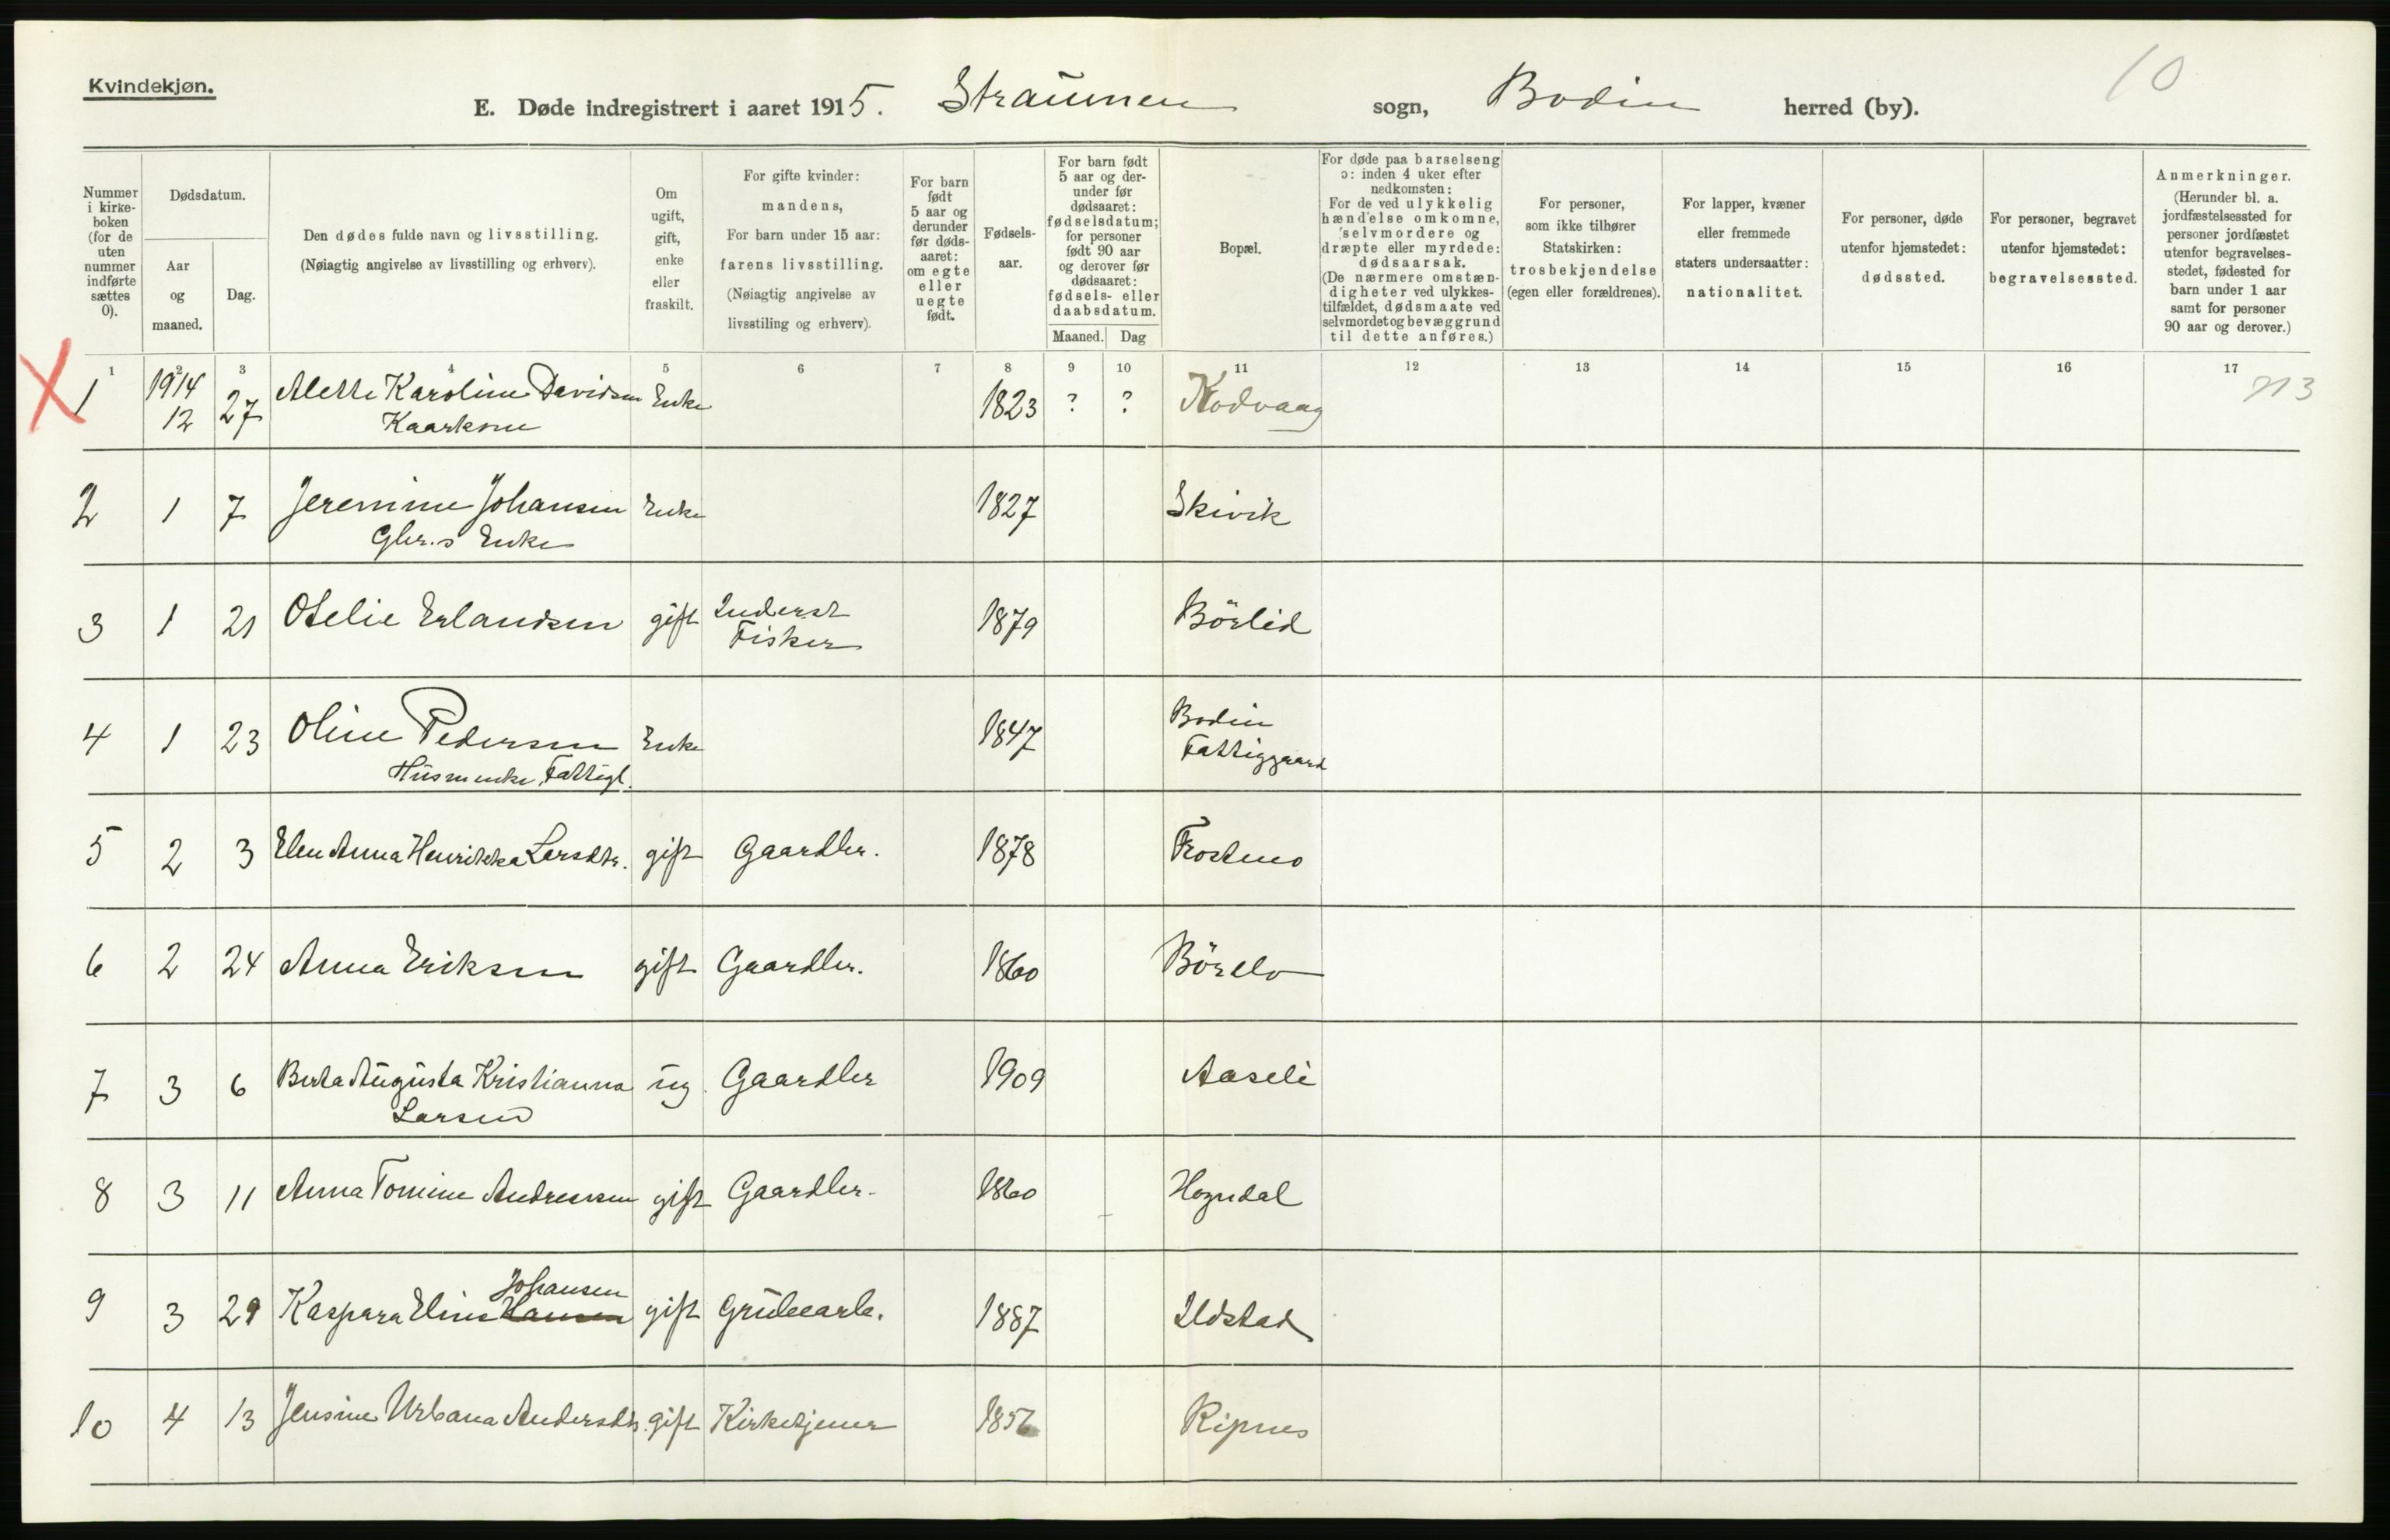 Kvindekjøn.
10
E. Døde indregistrert i aaret 1915. Straumen sogn, Bodin herred (by).
Nummer i kirke-boken (for de uten nummer indførte sættes 0).
Dødsdatum.
Aar og maaned.
Dag.
Den dødes fulde navn og livsstilling.
(Nøiagtig angivelse av livsstilling og erhverv).
Om ugift, gift, enke eller fraskilt.
For gifte kvinder: mandens,
For barn under 15 aar: farens livsstilling.
(Nøiagtig angivelse av livsstiling og erhverv).
For barn født 5 aar og derunder før døds-aaret: om egte eller uegte født.
Fødsels-aar.
For barn født 5 aar og der-under før dødsaaret: fødselsdatum; for personer født 90 aar og derover før dødsaaret: fødsels- eller daabsdatum.
Maaned. Dag
Bopæl.
For døde paa barselseng ɔ: inden 4 uker efter nedkomsten:
For de ved ulykkelig hændelse omkomne, selvmordere og dræpte eller myrdede: dødsaarsak.
(De nærmere omstæn-digheter ved ulykkes-tilfældet, dødsmaate ved selvmordet og bevæggrund til dette anføres.)
For personer, som ikke tilhører Statskirken: trosbekjendelse (egen eller forældrenes).
For lapper, kvæner eller fremmede staters undersaatter: nationalitet.
For personer, døde utenfor hjemstedet: dødssted.
For personer, begravet utenfor hjemstedet: begravelsessted.
Anmerkninger.
(Herunder bl. a. jordfæstelsessted for personer jordfæstet utenfor begravelses-stedet, fødested for barn under 1 aar samt for personer 90 aar og derover.)
1 2 3 4 5 6 7 8 9 10 11 12 13 14 15 16 17
X 1 1914 12 27 Alette Karoline Davidsen Enke 1823 ? ? Kodvaag 713
2 1 7 Jeremine Johansen Enke 1827 Skivik
Gbr.s Enke
3 1 21 Otelie Erlandsen gift Inderst Fisker 1879 Börlid
4 1 23 Oline Pedersen Enke 1847 Bodin Fattiggaard
Husm enke, Fattigl.
5 2 3 Elen Anna Henrikka Larsdtr. gift Gaardbr. 1878 Frostmo
6 2 24 Anna Eriksen gift Gaardbr. 1860 Börelv
7 3 6 Berta Augusta Kristianna ug. Gaardbr 1909 Aaseli
Larsen
8 3 11 Anna Tomine Andreassen gift Gaardbr. 1860 Hogndal
9 3 29 Kaspara Eline Hansen Johansen gift Grubearb. 1887 Ildstad
10 4 13 Jensine Urbana Andersdtr. gift Kirketjener 1856 Ripnes